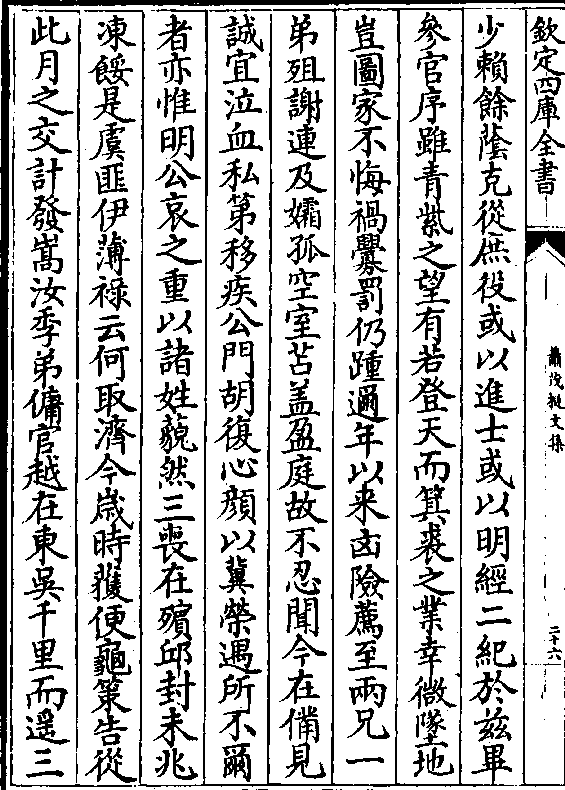 欽定四庫全書
蕭茂挺文集
二十六
少賴餘蔭克從庶役或以進士或以明經二紀於兹畢
參官序雖青紫之望有若登天而箕裘之業幸微墜地
豈圖家不悔禍釁罰仍踵邇年以来㐫險薦至兩兄一
弟殂謝連及孀孤空室苫盖盈庭故不忍聞今在備見
誠宜泣血私第移疾公門胡復心顔以冀榮遇所不爾
者亦惟明公哀之重以諸姓藐然三喪在殯邱封未兆
凍餒是虞匪伊薄禄云何取濟今嵗時獲便龜筞告從
此月之交計發嵩汝季弟傭官越在東吳千里而遥三